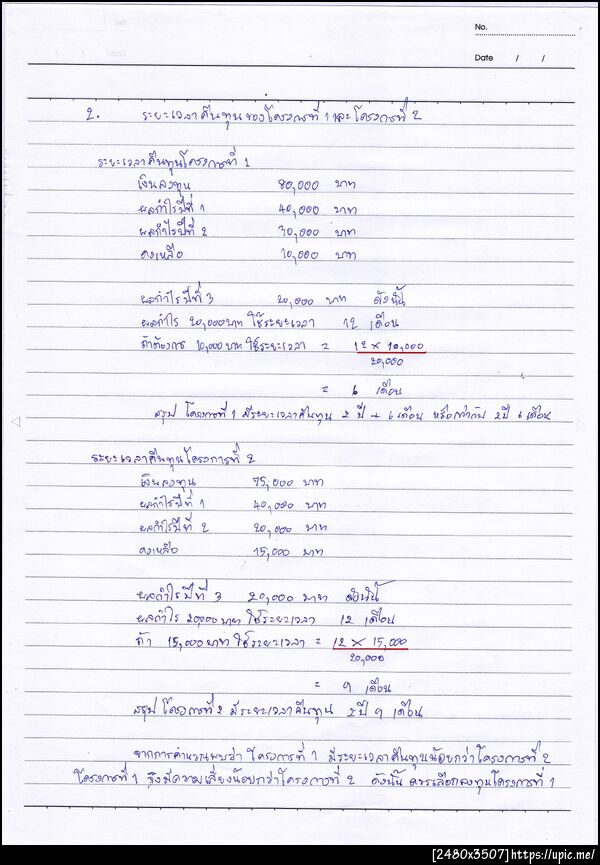 No.
Date / /
2. ระยะเวลาคืนทุนของโครงการที่ 1 และโครงการที่ 2
ระยะเวลาคืนทุนโครงการที่ 1
เงินลงทุน 80,000 บาท
ผลกำไรปีที่ 1 40,000 บาท
ผลกำไรปีที่ 2 30,000 บาท
คงเหลือ 10,000 บาท
ผลกำไรปีที่ 3 20,000 บาท ดังนั้น
ผลกำไร 20,000 บาท ใช้ระยะเวลา 12 เดือน
ถ้าต้องการ 10,000 บาท ใช้ระยะเวลา = 12 × 10,000
20,000
= 6 เดือน
สรุป โครงการที่ 1 มีระยะเวลาคืนทุน 2 ปี + 6 เดือน หรือเท่ากับ 2 ปี 6 เดือน
ระยะเวลาคืนทุนโครงการที่ 2
เงินลงทุน 75,000 บาท
ผลกำไรปีที่ 1 40,000 บาท
ผลกำไรปีที่ 2 20,000 บาท
คงเหลือ 15,000 บาท
ผลกำไรปีที่ 3 20,000 บาท ดังนั้น
ผลกำไร 20,000 บาท ใช้ระยะเวลา 12 เดือน
ถ้า 15,000 บาท ใช้ระยะเวลา = 12 × 15,000
20,000
= 9 เดือน
สรุป โครงการที่ 2 มีระยะเวลาคืนทุน 2 ปี 9 เดือน
จากการคำนวณพบว่า โครงการที่ 1 มีระยะเวลาคืนทุนน้อยกว่าโครงการที่ 2
โครงการที่ 1 จึงมีความเสี่ยงน้อยกว่าโครงการที่ 2 ดังนั้น ควรเลือกลงทุนโครงการที่ 1
[2480x3507]https://upic.me/